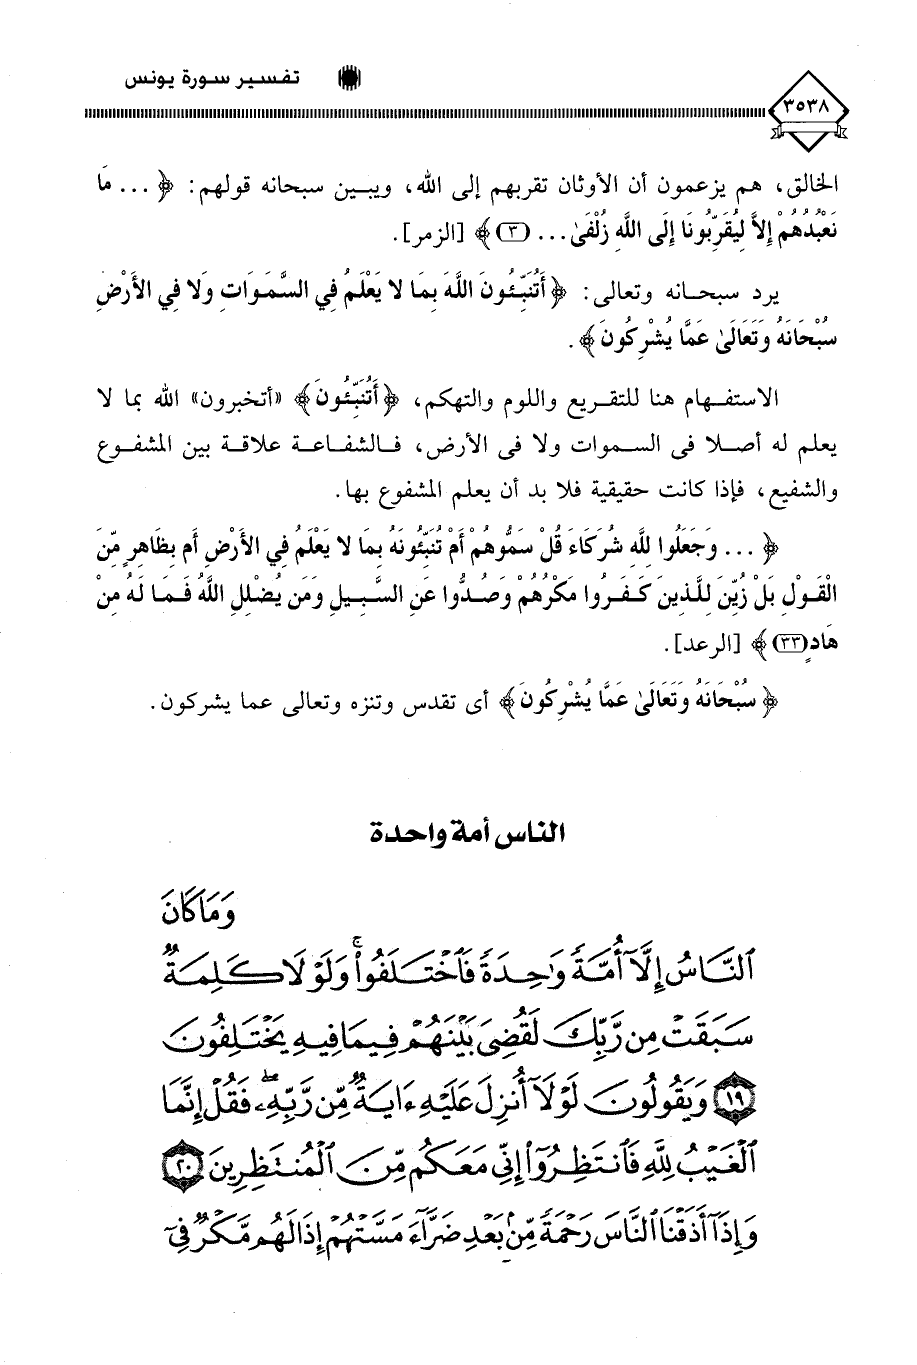 تفسير سورة يونس
٣٥٣٨
الخالق، هم يزعمون أن الأوثان تقربهم إلى الله، ويبين سبحانه قولهم: ﴿ ... مَا
نَعْبُدُهُمْ إِلاَّ لِيُقَرِّبُونَا إِلَى اللَّهِ زُلْفَىٰ ... (٣) ﴾ [الزمر].
يرد سبحانه وتعالى: ﴿ أَتُنَبِّئُونَ اللَّهَ بِمَا لا يَعْلَمُ فِي السَّمَوَاتِ وَلا فِي الأَرْضِ
سُبْحَانَهُ وَتَعَالَىٰ عَمَّا يُشْرِكُونَ ﴾ .
الاستفهام هنا للتقريع واللوم والتهكم، ﴿ أَتُنَبِّئُونَ ﴾ «أتخبرون» الله بما لا
يعلم له أصلا فى السموات ولا فى الأرض، فالشفاعة علاقة بين المشفوع
والشفيع، فإذا كانت حقيقية فلا بد أن يعلم المشفوع بها.
﴿ ... وَجَعَلُوا لِلَّهِ شُرَكَاءَ قُلْ سَمُّوهُمْ أَمْ تُنَبِّئُونَهُ بِمَا لا يَعْلَمُ فِي الأَرْضِ أَم بِظَاهِرٍ مِّنَ
الْقَوْلِ بَلْ زُيِّنَ لِلَّذِينَ كَفَرُوا مَكْرُهُمْ وَصُدُّوا عَنِ السَّبِيلِ وَمَن يُضْلِلِ اللَّهُ فَمَا لَهُ مِنْ
هَادٍ (٣٣) ﴾ [الرعد].
﴿ سُبْحَانَهُ وَتَعَالَىٰ عَمَّا يُشْرِكُونَ ﴾ أى تقدس وتنزه وتعالى عما يشركون.
الناس أمة واحدة
وَمَا كَانَ
ٱلنَّاسُ إِلَّآ أُمَّةً وَٰحِدَةً فَٱخْتَلَفُوا۟ ۚ وَلَوْلَا كَلِمَةٌ
سَبَقَتْ مِن رَّبِّكَ لَقُضِىَ بَيْنَهُمْ فِيمَا فِيهِ يَخْتَلِفُونَ
١٩ وَيَقُولُونَ لَوْلَآ أُنزِلَ عَلَيْهِ ءَايَةٌ مِّن رَّبِّهِۦ ۖ فَقُلْ إِنَّمَا
ٱلْغَيْبُ لِلَّهِ فَٱنتَظِرُوٓا۟ إِنِّى مَعَكُم مِّنَ ٱلْمُنتَظِرِينَ ٢٠
وَإِذَآ أَذَقْنَا ٱلنَّاسَ رَحْمَةً مِّنۢ بَعْدِ ضَرَّآءَ مَسَّتْهُمْ إِذَا لَهُم مَّكْرٌ فِىٓ